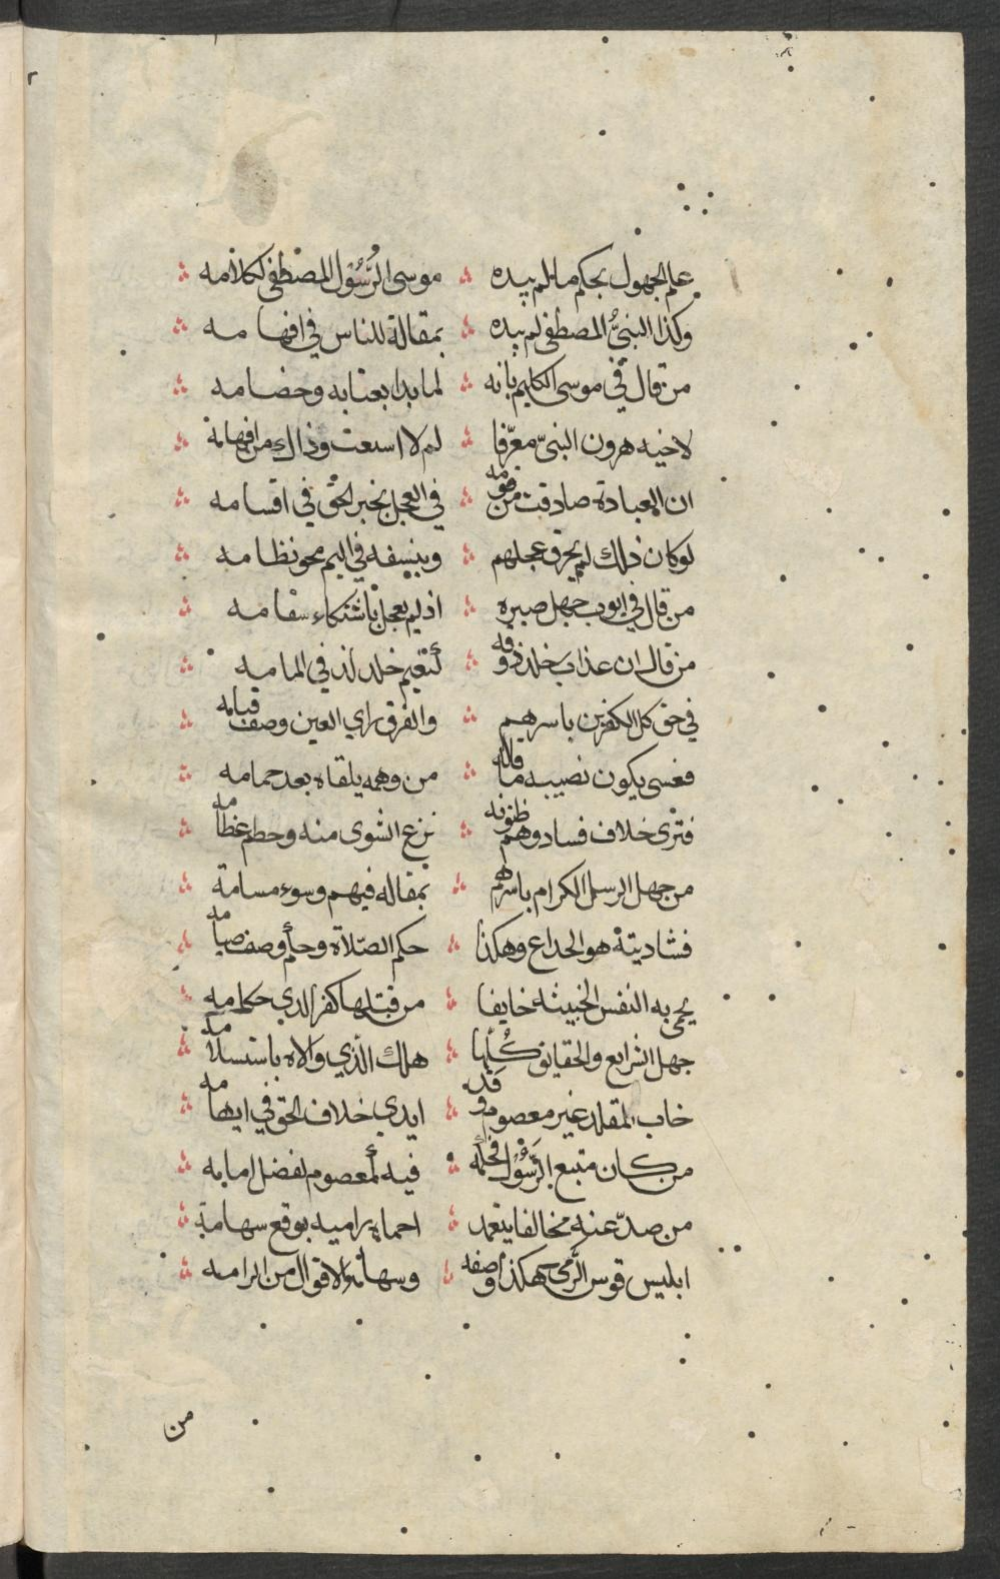 علم الجهول بحكم ما لم يبده موسى الرَّسُوْل المصطفى لكلامه
وكذا النبىُّ المصطفى لم يبده بمقالة للناس فى افهامه
من قال فى موسى الكليم بانه لما بدا بعتابه وخصامه
لاخيه هرون النبىّ معرّفا لم لا اسعت وذاك من افهامه
ان العبادة صادقت من قومه فى العجل بخبر الحق فى اقسامه
لو كان ذلك لم يحرق عجلهم وينسفه فى اليم محو نظامه
من قال فى ايوب جهل صبره اذ لم يعجل باشتكاء سقامه
من قال ان عذاب خلد ذوقه كنعيم خلد لذ فى المامه
فى حق كل الكفرين باسرهم والفرق راى العين وصف قيامه
فعسى يكون نصيبه ما قاله من وهمه يلقاه بعد حمامه
فترى خلاف فساد وهم ظنونه نزع الشوى منه وحطم عظامه
من جهل الرسل الكرام باسرهم بمقاله فيهم وسوء مسامة
هو الخداع وهكذا حكم الصّلاة وصف صيامه
يحمى به النفس الخبيثة خايفا من قتلها كفر الذي حكامه
جهل الشرايع والحقايق كُلّها هلك الّذي والاه باستسلامه
خاب المقلد غير معصوم وقد ابدى خلاف الحق فى ايهامه
من كان متبع الرَّسُوْل فيه لمعصوم لفضل امامه
من صدّ عنه مخالفا يتعمد احماه راميه بوقع سهامة
ابليس قوس الرّمى هكذا وصفه وسهامه الاقوال من ابرامه
من